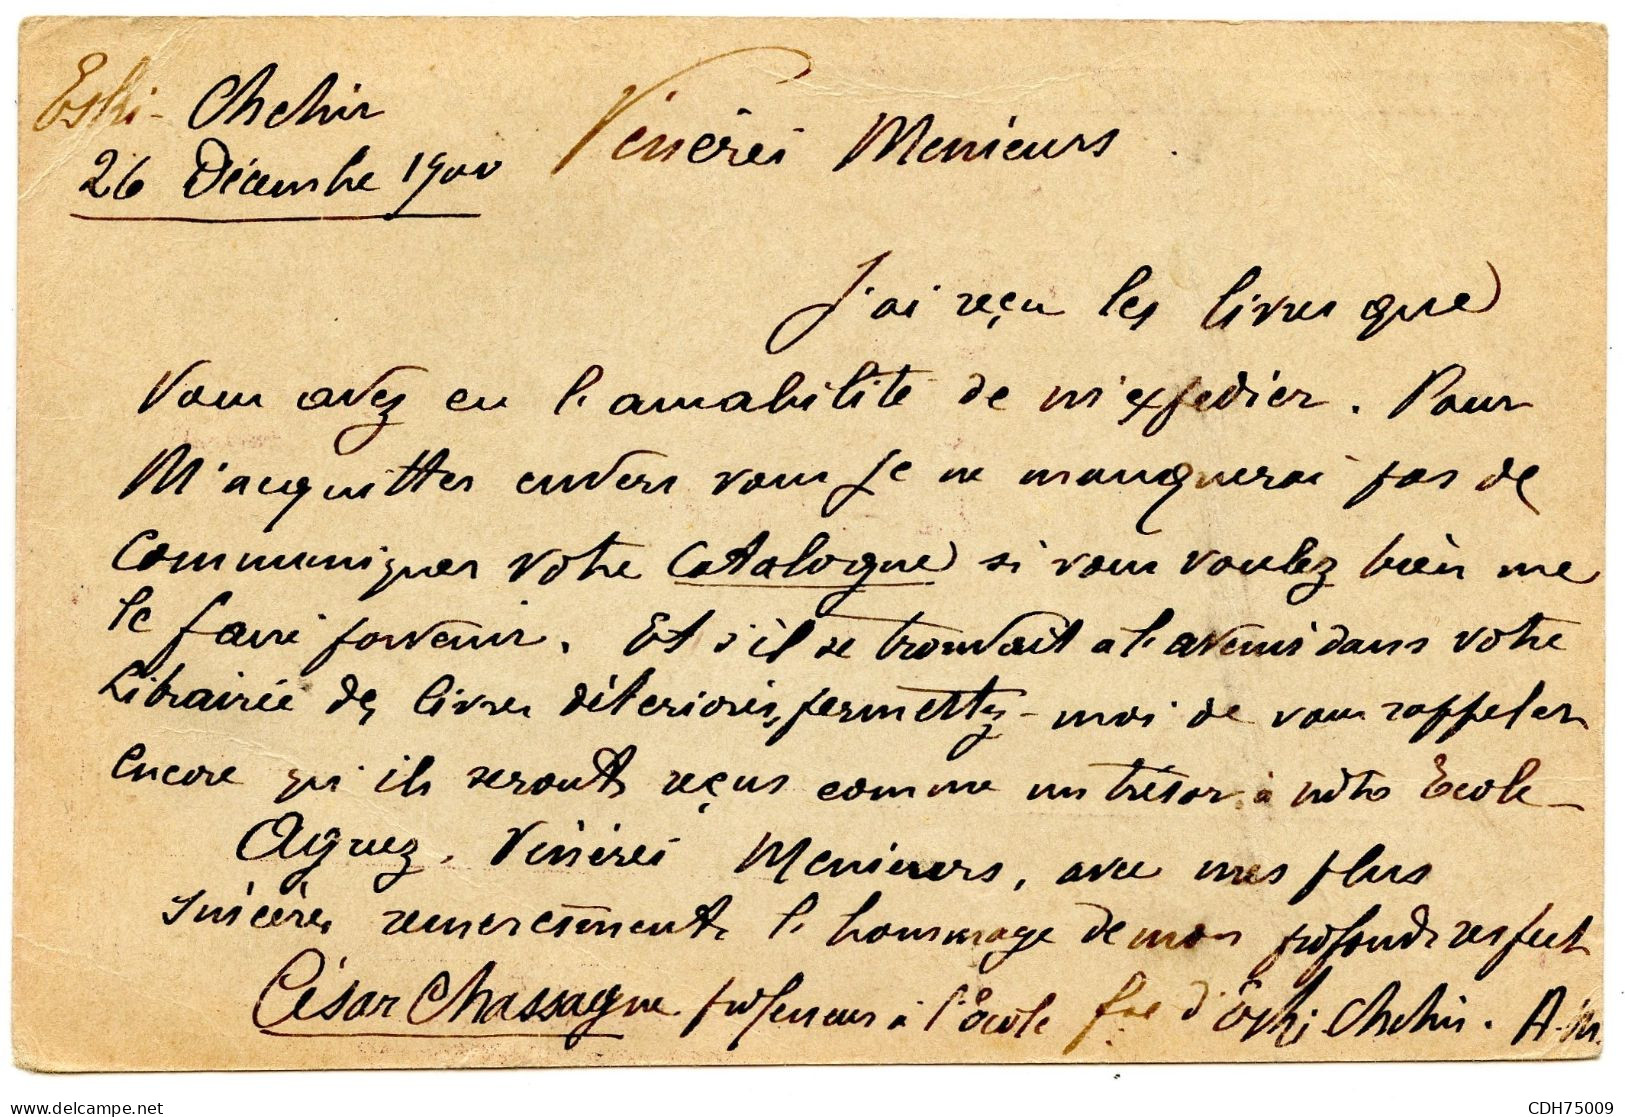 Eski-Chehir
26 Décembre 1900
Vénérés Messieurs
J'ai reçu les livres que
Vous avez eu l'amabilité de m'expédier. Pour
M'acquitter envers vous je ne manquerai pas de
communiquer votre Catalogue si vous voulez bien me
le faire parvenir. Et s'il se trouvait à l'avenir dans votre
Librairie des livres détériorés, permettez-moi de vous rappeler
encore qu'ils seront reçus comme un trésor à notre Ecole
Agréez, Vénérés Messieurs, avec mes plus
sincères remerciements l'hommage de mon profond respect
César Chassagne professeur à l'Ecole fse d'Eski Chehir. A.M.
CDH75009